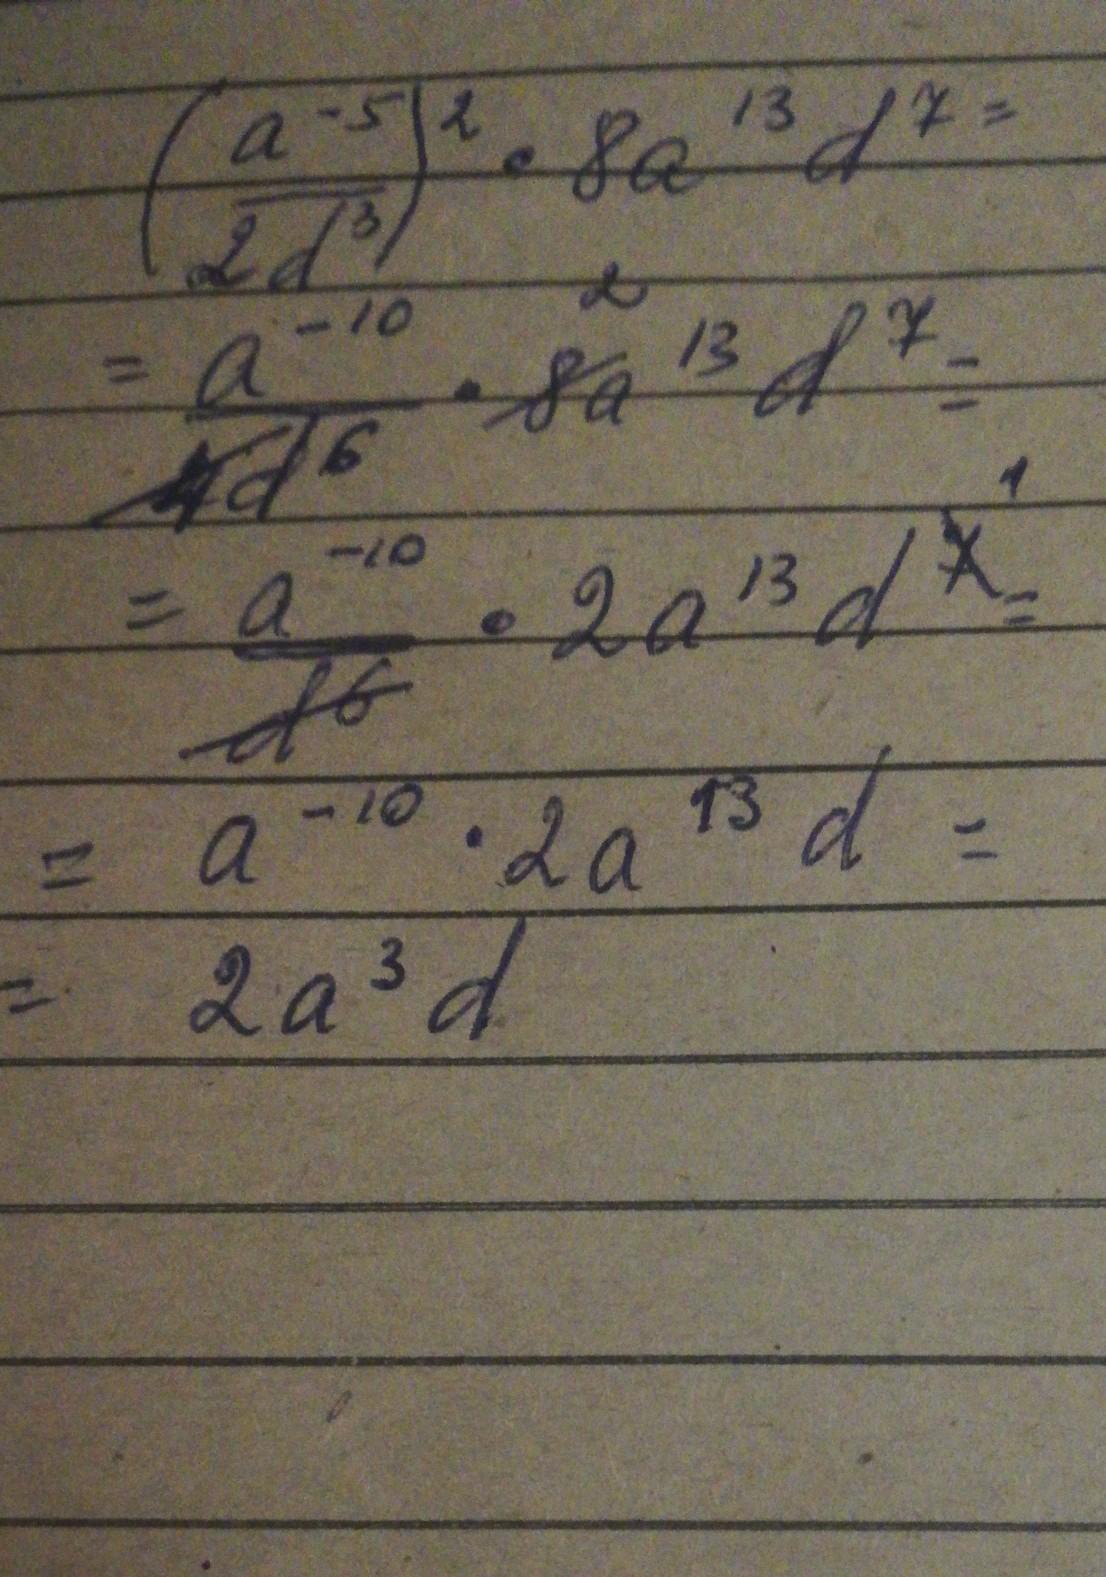 (a⁻⁵/2d³)² · 8a¹³d⁷ =
= a⁻¹⁰/4d⁶ · 8a¹³d⁷ = 2
= a⁻¹⁰/d⁶ · 2a¹³d⁷ = 1
= a⁻¹⁰ · 2a¹³d =
= 2a³d